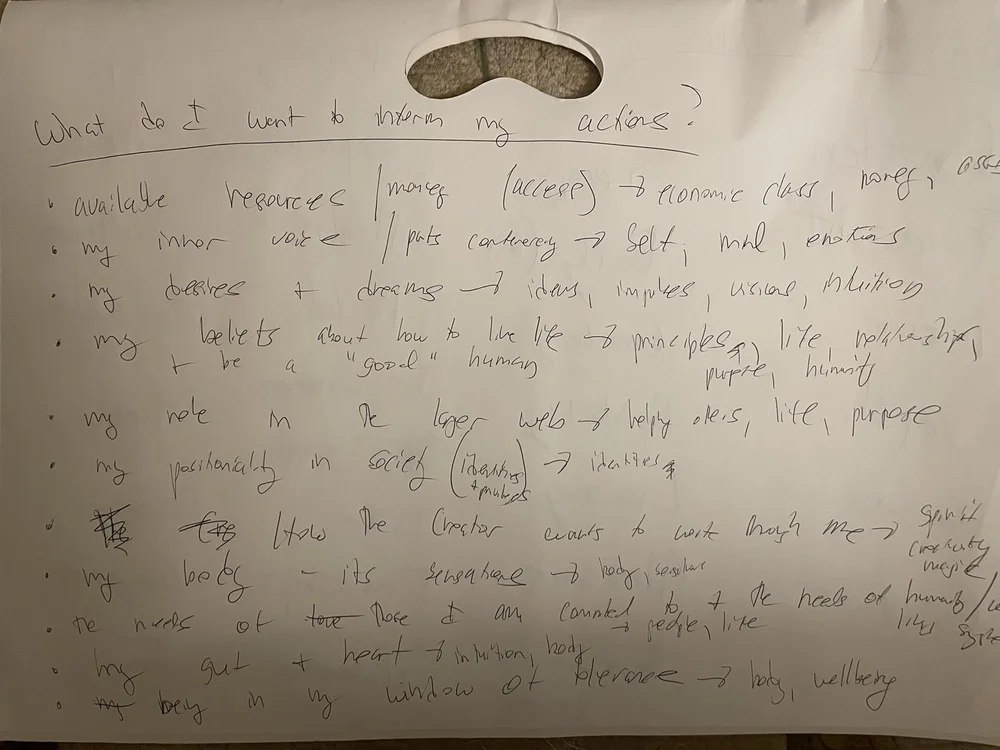 What do I want to inform my actions?
• available resources / money (access) → economic class, money,
• my inner voice / parts → Self, mind, emotions
• my desires + dreams → ideas, impulses, visions, intuition
• my beliefs about how to live life → principles, life, relationships,
+ be a "good" human purpose, humanity
• my role in the larger web → helping others, life, purpose
• my positionality in society (identities → identities
• How the Creator wants to work through me → Spirit
creativity
magic
• my body - its sensations → body, sensations
• the needs of those I am connected to + the needs of humanity /
→ people, life
• my gut + heart → intuition, body
• being in my window of tolerance → body, wellbeing